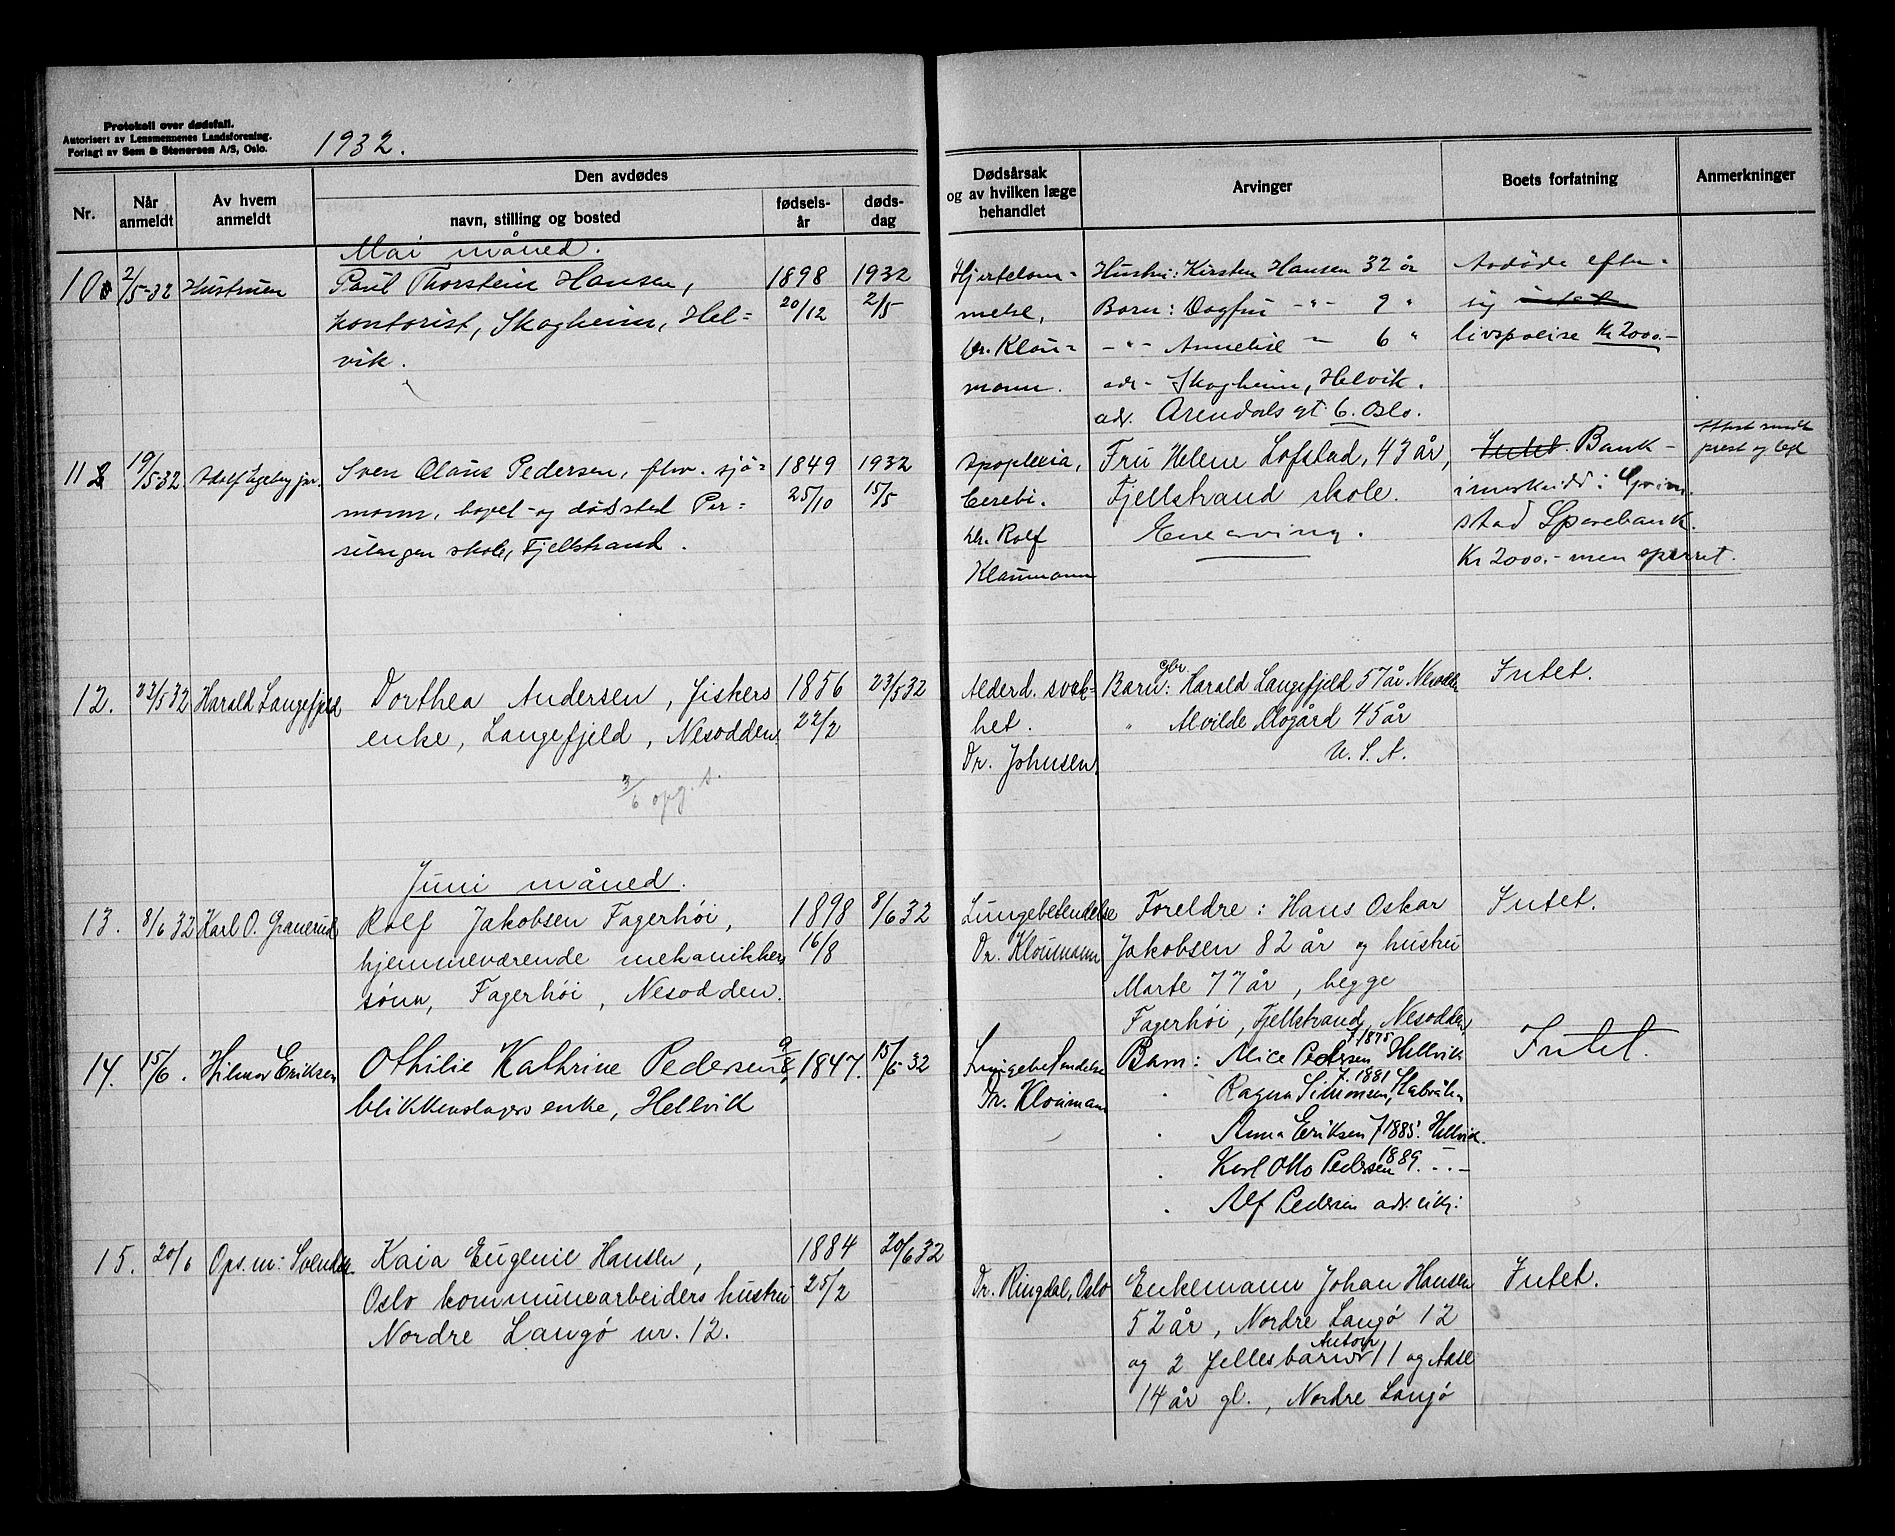 Protokoll over dødsfall.
Autorisert av Lensmennenes Landsforening.
Forlagt av Sem & Stenersen A/S, Oslo.
1932.
Nr.
Når anmeldt
Av hvem anmeldt
Den avdødes
navn, stilling og bosted
fødselsår
dødsdag
Dødsårsak
og av hvilken læge
behandlet
Arvinger
Boets forfatning
Anmerkninger
Mai måned.
10 2/5-32 Hustruen
Paul Thorstein Hansen,
kontorist, Skogheim, Hel-
vik.
1898
20/12
1932
2/5
Hjertelam-
melse,
Dr. Klou-
mann.
Hustru: Kirsten Hansen 32 år
Barn: Dagfin -"- 9 "
-"- Annelise - 6 "
adr. Skogheim, Helvik.
adr. Arendals gt. 6. Oslo.
Avdøde efter-
sig
livspolise Kr 2000.-
11 19/5-32 Adolf jr.
Sven Claus Pedersen, fhv. sjø-
mann, bopel og dødssted Per-
stengen skole, Fjellstrand.
1849
25/10
1932
15/5
Apoplexia,
Cerebi.
Dr. Rolf
Kloumann
Fru Helene Lofstad, 43 år,
Fjellstrand skole.
Enearving.
Intet. Bank-
innskudd i Grim-
stad Sparebank.
Kr 2000.- men sperret.
Attest sendt
prest og
12. 22/5 32 Harald Langefjeld
Dorthea Andersen, fiskers
enke, Langefjeld, Nesodden.
1856
22/2
23/5 32
Alderd. svak-
het.
Dr. Johnsen.
Barn: gbr. Harald Langefjeld 57 år Nesodden
" Alvilde Mogård 45 år
U. S. A.
Intet.
3/6 opg. s.
Juni måned.
13. 8/6 32 Karl O. Granerud
Rolf Jakobsen Fagerhøi,
hjemmeværende mekanikkers
sønn, Fagerhøi, Nesodden.
1898
16/8
8/6 32
Lungebetendelse
Dr. Kloumann
Foreldre: Hans Oskar
Jakobsen 82 år og hustru
Marte 77 år, begge
Fagerhøi, Fjellstrand, Nesodden
Intet.
14. 15/6. Hilmar Eriksen
Othilie Kathrine Pedersen
blikkenslagers enke, Hellvik
9/8 1847.
15/6 32
Lungebetendelse
Dr. Kloumann
Barn: Alice Pedersen f. 1875 Hellvik
" Ragna Simonsen, f. 1881
" Anna Eriksen f 1885. Hellvik.
" Karl Otto Pedersen 1889. - " -
" Alf Pedersen adr. ukj.
Intet.
15. 20/6 Ops.m: Svendsen
Kaia Eugenie Hansen,
Oslo kommunearbeiders hustru
Nordre Langø nr. 12.
1884
25/2
20/6 32
Dr. Ringdal, Oslo
Enkemann Johan Hansen
52 år, Nordre Langø 12
og 2 fellesbarn 11 og Aase
14 år gl., Nordre Langø
Intet.